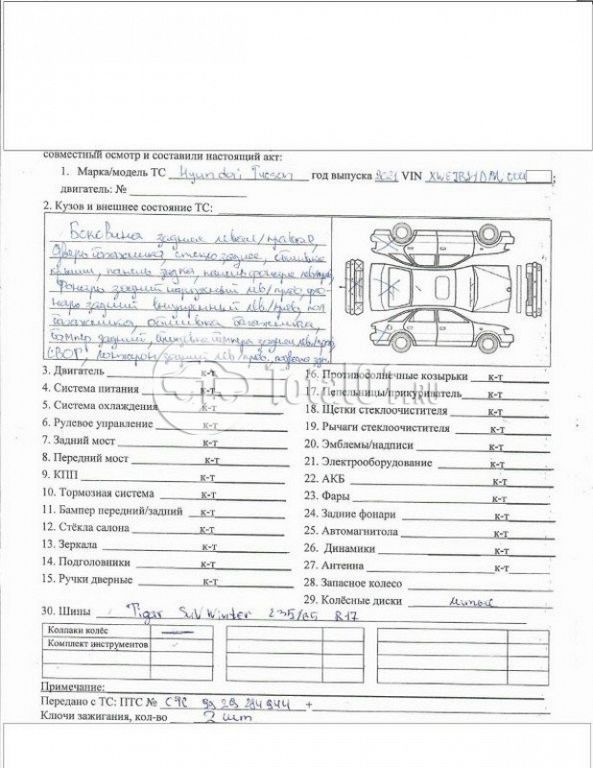 совместный осмотр и составили настоящий акт:
1. Марка/модель ТС Hyundai Tucson год выпуска 2021 VIN
двигатель: №
2. Кузов и внешнее состояние ТС:
Боковина задняя левая/правая,
дверь багажника, стекло заднее,
крыши, панель задка,
Фонарь задний наружный лев/прав,
задний внутренний лев/прав, пол
багажника, обшивка багажника,
бампер задний,
задний лев/прав,
3. Двигатель к-т
4. Система питания к-т
5. Система охлаждения к-т
6. Рулевое управление к-т
7. Задний мост к-т
8. Передний мост к-т
9. КПП к-т
10. Тормозная система к-т
11. Бампер передний/задний к-т
12. Стёкла салона к-т
13. Зеркала к-т
14. Подголовники к-т
15. Ручки дверные к-т
16. Противосолнечные козырьки к-т
17. Пепельницы/прикуриватель к-т
18. Щетки стеклоочистителя к-т
19. Рычаги стеклоочистителя к-т
20. Эмблемы/надписи к-т
21. Электрооборудование к-т
22. АКБ к-т
23. Фары к-т
24. Задние фонари к-т
25. Автомагнитола к-т
26. Динамики к-т
27. Антенна к-т
28. Запасное колесо
29. Колёсные диски литые
30. Шины Tigar SUV Winter 235/65 R17
Колпаки колёс
Комплект инструментов
Примечание:
Передано с ТС: ПТС № СТС 99 29 294944 +
Ключи зажигания, кол-во 2 шт